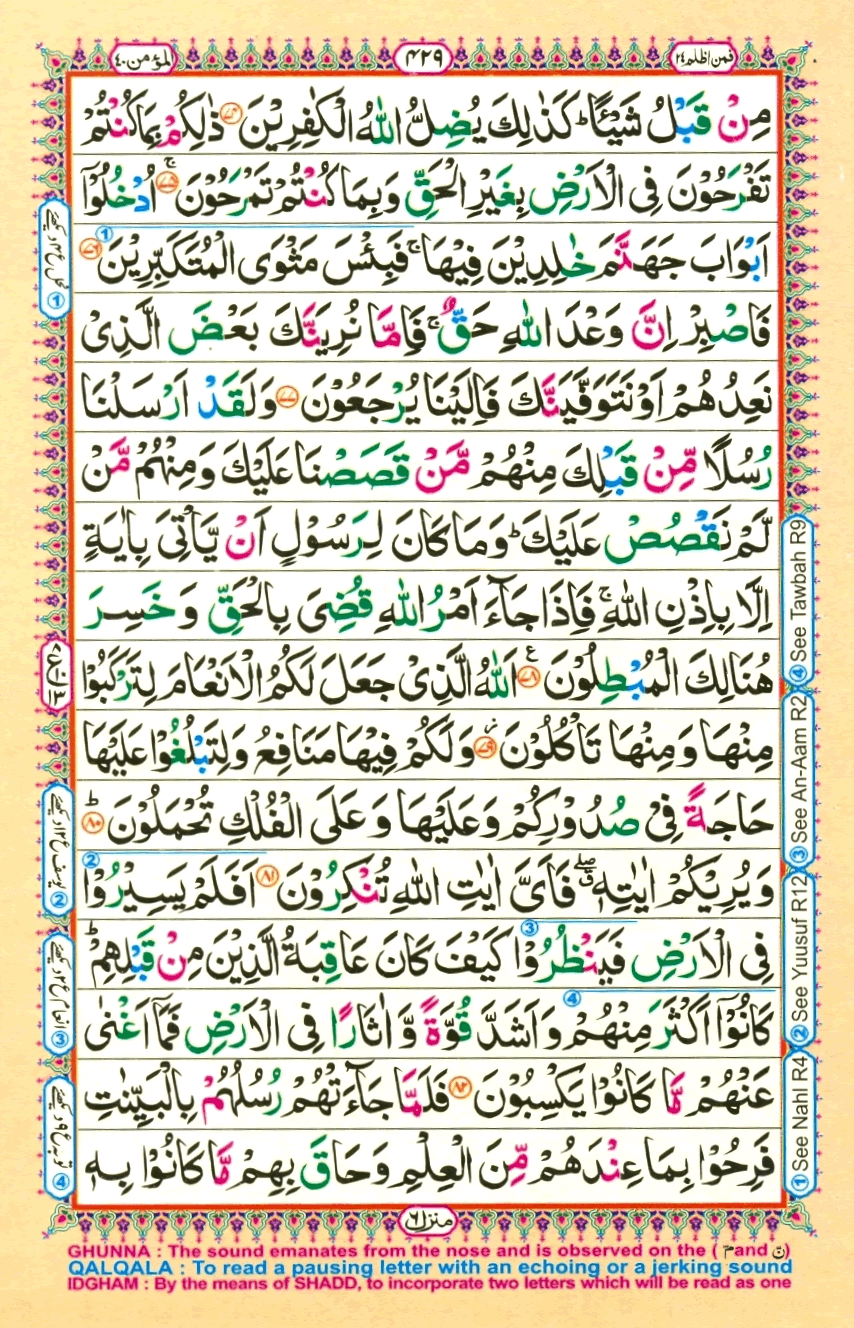 فمن اظلم ۲۴
۴۲۹
المؤمن ۴۰
مِنْ قَبْلُ شَيْـًٔا ؕ كَذٰلِكَ يُضِلُّ اللّٰهُ الْكٰفِرِيْنَ ﴿۷۴﴾ ذٰلِكُمْ بِمَا كُنْتُمْ
تَفْرَحُوْنَ فِى الْاَرْضِ بِغَيْرِ الْحَقِّ وَبِمَا كُنْتُمْ تَمْرَحُوْنَ ﴿۷۵﴾ۚ اُدْخُلُوْۤا
اَبْوَابَ جَهَنَّمَ خٰلِدِيْنَ فِيْهَا ۚ فَبِئْسَ مَثْوَى الْمُتَكَبِّرِيْنَ ① ﴿۷۶﴾
فَاصْبِرْ اِنَّ وَعْدَ اللّٰهِ حَقٌّ ۚ فَاِمَّا نُرِيَنَّكَ بَعْضَ الَّذِىْ
نَعِدُهُمْ اَوْ نَتَوَفَّيَنَّكَ فَاِلَيْنَا يُرْجَعُوْنَ ﴿۷۷﴾ وَلَقَدْ اَرْسَلْنَا
رُسُلًا مِّنْ قَبْلِكَ مِنْهُمْ مَّنْ قَصَصْنَا عَلَيْكَ وَمِنْهُمْ مَّنْ
لَّمْ نَقْصُصْ عَلَيْكَ ؕ وَمَا كَانَ لِرَسُوْلٍ اَنْ يَّاْتِىَ بِاٰيَةٍ
اِلَّا بِاِذْنِ اللّٰهِ ۚ فَاِذَا جَآءَ اَمْرُ اللّٰهِ قُضِىَ بِالْحَقِّ وَخَسِرَ
هُنَالِكَ الْمُبْطِلُوْنَ ﴿۷۸﴾ع اَللّٰهُ الَّذِىْ جَعَلَ لَكُمُ الْاَنْعَامَ لِتَرْكَبُوْا
مِنْهَا وَمِنْهَا تَاْكُلُوْنَ ﴿۷۹﴾ؗ وَلَكُمْ فِيْهَا مَنَافِعُ وَلِتَبْلُغُوْا عَلَيْهَا
حَاجَةً فِىْ صُدُوْرِكُمْ وَعَلَيْهَا وَعَلَى الْفُلْكِ تُحْمَلُوْنَ ﴿۸۰﴾ؕ
وَيُرِيْكُمْ اٰيٰتِهٖ ۖق فَاَىَّ اٰيٰتِ اللّٰهِ تُنْكِرُوْنَ ﴿۸۱﴾ ② اَفَلَمْ يَسِيْرُوْا
فِى الْاَرْضِ ③ فَيَنْظُرُوْا كَيْفَ كَانَ عَاقِبَةُ الَّذِيْنَ مِنْ قَبْلِهِمْ ؕ
④ كَانُوْۤا اَكْثَرَ مِنْهُمْ وَاَشَدَّ قُوَّةً وَّاٰثَارًا فِى الْاَرْضِ فَمَاۤ اَغْنٰى
عَنْهُمْ مَّا كَانُوْا يَكْسِبُوْنَ ﴿۸۲﴾ فَلَمَّا جَآءَتْهُمْ رُسُلُهُمْ بِالْبَيِّنٰتِ
فَرِحُوْا بِمَا عِنْدَهُمْ مِّنَ الْعِلْمِ وَحَاقَ بِهِمْ مَّا كَانُوْا بِهٖ
④ See Tawbah R9
③ See An-Aam R2
② See Yuusuf R12
① See Nahl R4
نحل ع ۴ دیکھئے ①
یوسف ع ۱۲ دیکھئے ②
انعام ع ۲ دیکھئے ③
توبہ ع ۹ دیکھئے ④
منزل ۶
GHUNNA : The sound emanates from the nose and is observed on the ( م and ن)
QALQALA : To read a pausing letter with an echoing or a jerking sound
IDGHAM : By the means of SHADD, to incorporate two letters which will be read as one